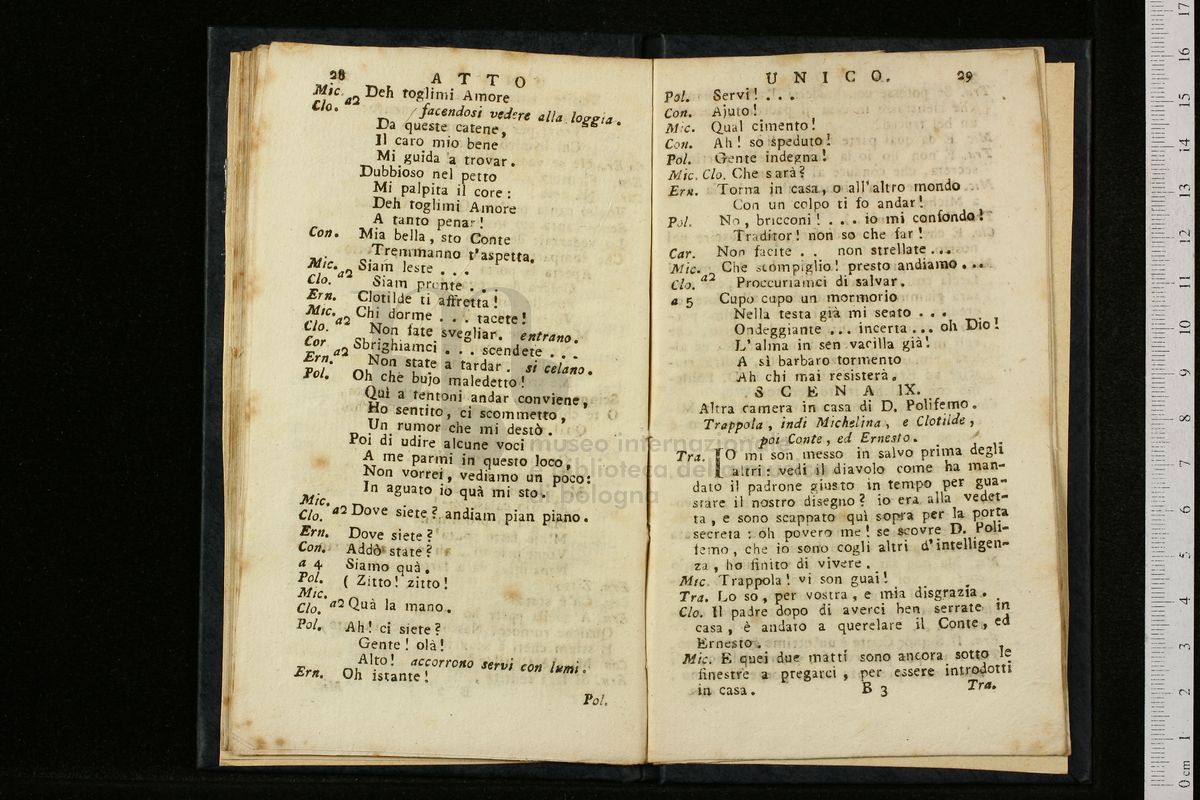 28 ATTO
Mic. Clo. a2 Deh toglimi Amore
facendosi vedere alla loggia.
Da queste catene,
Il caro mio bene
Mi guida a trovar.
Dubbioso nel petto
Mi palpita il core:
Deh toglimi Amore
A tanto penar!
Con. Mia bella, sto Conte
Tremmanno t'aspetta.
Mic. Clo. a2 Siam leste . . .
Siam pronte . . .
Ern. Clotilde ti affretta!
Mic. Clo. a2 Chi dorme . . . tacete!
Non fate svegliar. entrano.
Cor Ern. a2 Sbrighiamci . . . scendete . . .
Non state a tardar. si celano.
Pol. Oh che bujo maledetto!
Quì a tentoni andar conviene,
Ho sentito, ci scommetto,
Un rumor che mi destò.
Poi di udire alcune voci
A me parmi in questo loco,
Non vorrei, vediamo un poco:
In aguato io quà mi sto.
Mic. Clo. a2 Dove siete? andiam pian piano.
Ern. Dove siete?
Con. Addò state?
a 4 Siamo quà.
Pol. ( Zitto! zitto!
Mic. Clo. a2 Quà la mano.
Pol. Ah! ci siete?
Gente! olà!
Alto! accorrono servi con lumi.
Ern. Oh istante!
Pol.
UNICO. 29
Pol. Servi! . . .
Con. Ajuto!
Mic. Qual cimento!
Con. Ah! so speduto!
Pol. Gente indegna!
Mic. Clo. Che sarà?
Ern. Torna in casa, o all'altro mondo
Con un colpo ti fo andar!
Pol. No, bricconi! . . . io mi confondo!
Traditor! non so che far!
Car. Non facite . . non strellate ...
Mic. Clo. a2 Che scompiglio! presto andiamo ...
Proccuriamci di salvar.
a 5 Cupo cupo un mormorio
Nella testa già mi sento . . .
Ondeggiante ... incerta ... oh Dio!
L'alma in sen vacilla già!
A sì barbaro tormento
Ah chi mai resisterà.
SCENA IX.
Altra camera in casa di D. Polifemo.
Trappola, indi Michelina, e Clotilde,
poi Conte, ed Ernesto.
Tra. IO mi son messo in salvo prima degli
altri: vedi il diavolo come ha man-
dato il padrone giusto in tempo per gua-
stare il nostro disegno? io era alla vedet-
ta, e sono scappato quì sopra per la porta
secreta: oh povero me! se scovre D. Poli-
femo, che io sono cogli altri d'intelligen-
za, ho finito di vivere.
Mic. Trappola! vi son guai!
Tra. Lo so, per vostra, e mia disgrazia.
Clo. Il padre dopo di averci ben serrate in
casa, è andato a querelare il Conte, ed
Ernesto.
Mic. E quei due matti sono ancora sotto le
finestre a pregarci, per essere introdotti
in casa. B 3 Tra.
museo internazionale
e biblioteca della musica
di bologna
0 cm 1 2 3 4 5 6 7 8 9 10 11 12 13 14 15 16 17